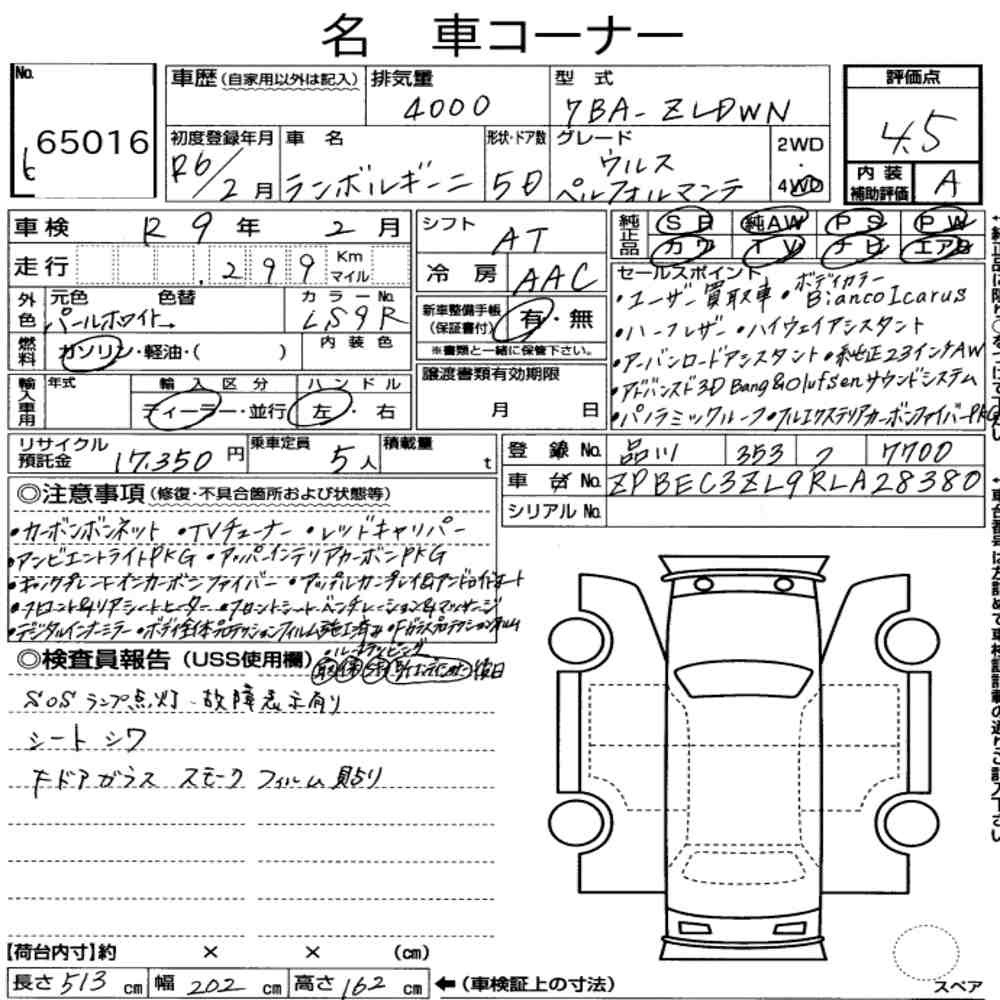 名 車コーナー
No.
65016
6
車歴 (自家用以外は記入)
排気量
4000
型 式
7BA-ZLDWN
初度登録年月
R6/2月
車 名
ランボルギーニ
形状・ドア数
5D
グレード
ウルス
ペルフォルマンテ
2WD
・
4WD
評価点
4.5
内 装
補助評価
A
車検 R 9 年 2 月
走行 .299 Km
マイル
外色
元色 色替
パールホワイト→
カラーNo.
LS9R
燃料
ガソリン・軽油・( )
内 装 色
輸入車用
年式
輸 入 区 分
ディーラー・並行
ハ ン ド ル
左・右
シフト
AT
冷 房
AAC
新車整備手帳
(保証書付)
有・無
※書類と一緒に保管下さい。
譲渡書類有効期限
月 日
純正品
SR 純AW PS PW
カワ TV ナビ エアB
セールスポイント
・ユーザー買取車 ・ボディカラー
Bianco Icarus
・ハーフレザー ・ハイウェイアシスタント
・アーバンロードアシスタント ・純正23インチAW
・アドバンスド3D Bang&Olufsenサウンドシステム
・パノラミックルーフ ・フルエクステリアカーボンファイバーPKG
リサイクル
預託金 17,350 円
乗車定員
5人
積載量
t
登 録 No. 品川 353 7700
車 台 No. ZPBEC3ZL9RLA28380
シリアル No.
◎注意事項 (修復・不具合箇所および状態等)
・カーボンボンネット ・TVチューナー ・レッドキャリパー
・アンビエントライトPKG ・アッパーインテリアカーボンPKG
・キックプレートインカーボンファイバー ・アップルカープレイ&アンドロイドオート
・フロント&リアシートヒーター ・フロントシートベンチレーション&マッサージ
・デジタルインナーミラー ・ボディ全体プロテクションフィルム施工済み ・Fガラスプロテクションフィルム
◎検査員報告 (USS使用欄)
後日
SOSランプ点灯 故障表示有り
シート シワ
FドアガラススモークフィルムBA貼り
【荷台内寸】約 × × (cm)
長さ 513 cm 幅 202 cm 高さ 162 cm ←(車検証上の寸法)
スペア